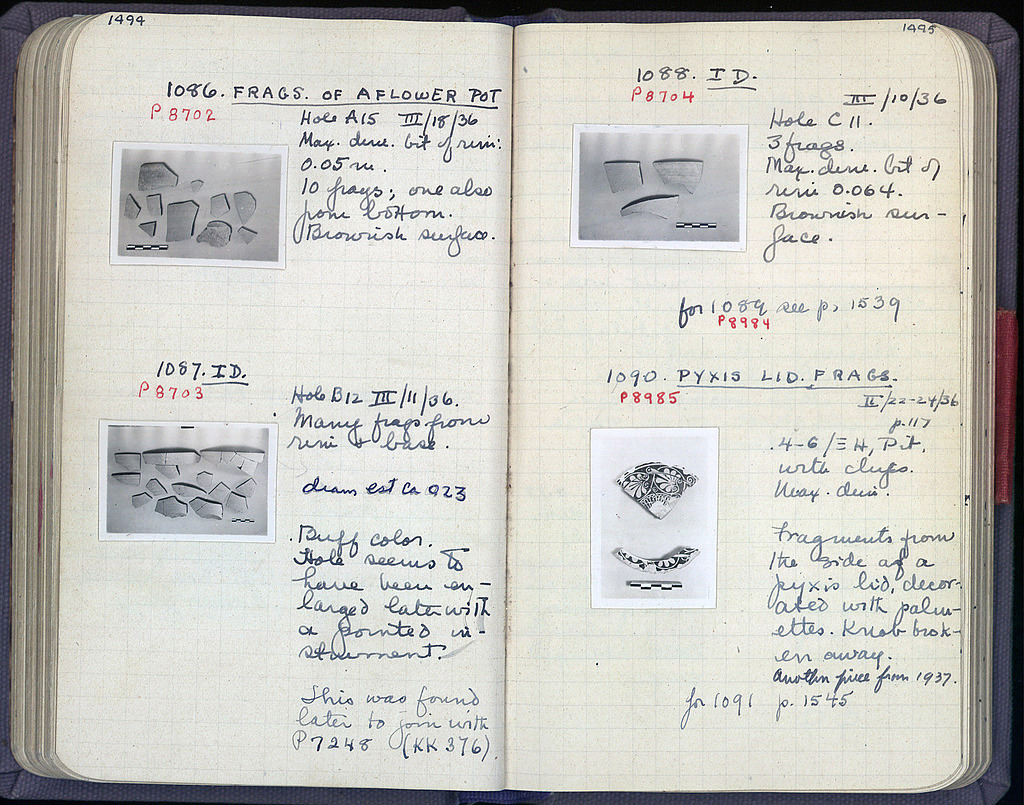 1494
1086. FRAGS. OF A FLOWER POT
P 8702
Hole A15 III/18/36
Max. dim. bit of rim:
0.05 m.
10 frags; one also
from bottom.
Brownish surface.
1087. ID.
P 8703
Hole B12 III/11/36.
Many frags from
rim & base.
diam est ca 023
Buff color.
Hole seems to
have been en-
larged later with
a pointed in-
strument.
This was found
later to join with
P 7248 (KK 376)
1495
1088. ID.
P 8704
III/10/36
Hole C 11.
3 frags.
Max. dim. bit of
rim 0.064.
Brownish sur-
face.
for 1089 see p. 1539
P 8984
1090. PYXIS LID. FRAGS.
P 8985
II/22-24/36
p. 117
4-6/ΞH, Pit,
with
Max. dim.
Fragments from
the side of a
pyxis lid, decor-
ated with palm-
ettes. Knob brok-
en away.
Another piece from 1937.
for 1091 p. 1545